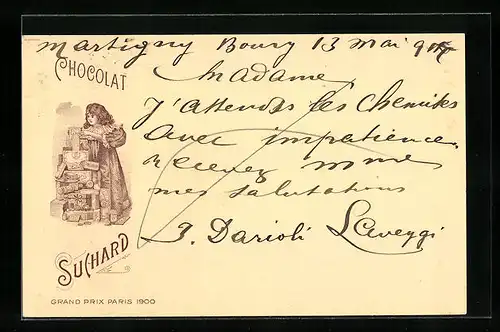 Martigny Bourg 13 Mai
CHOCOLAT
Madame
J'attends les chemises
avec impatience.
Recevez mme
mes salutations
J. Darioli
SUCHARD
GRAND PRIX PARIS 1900